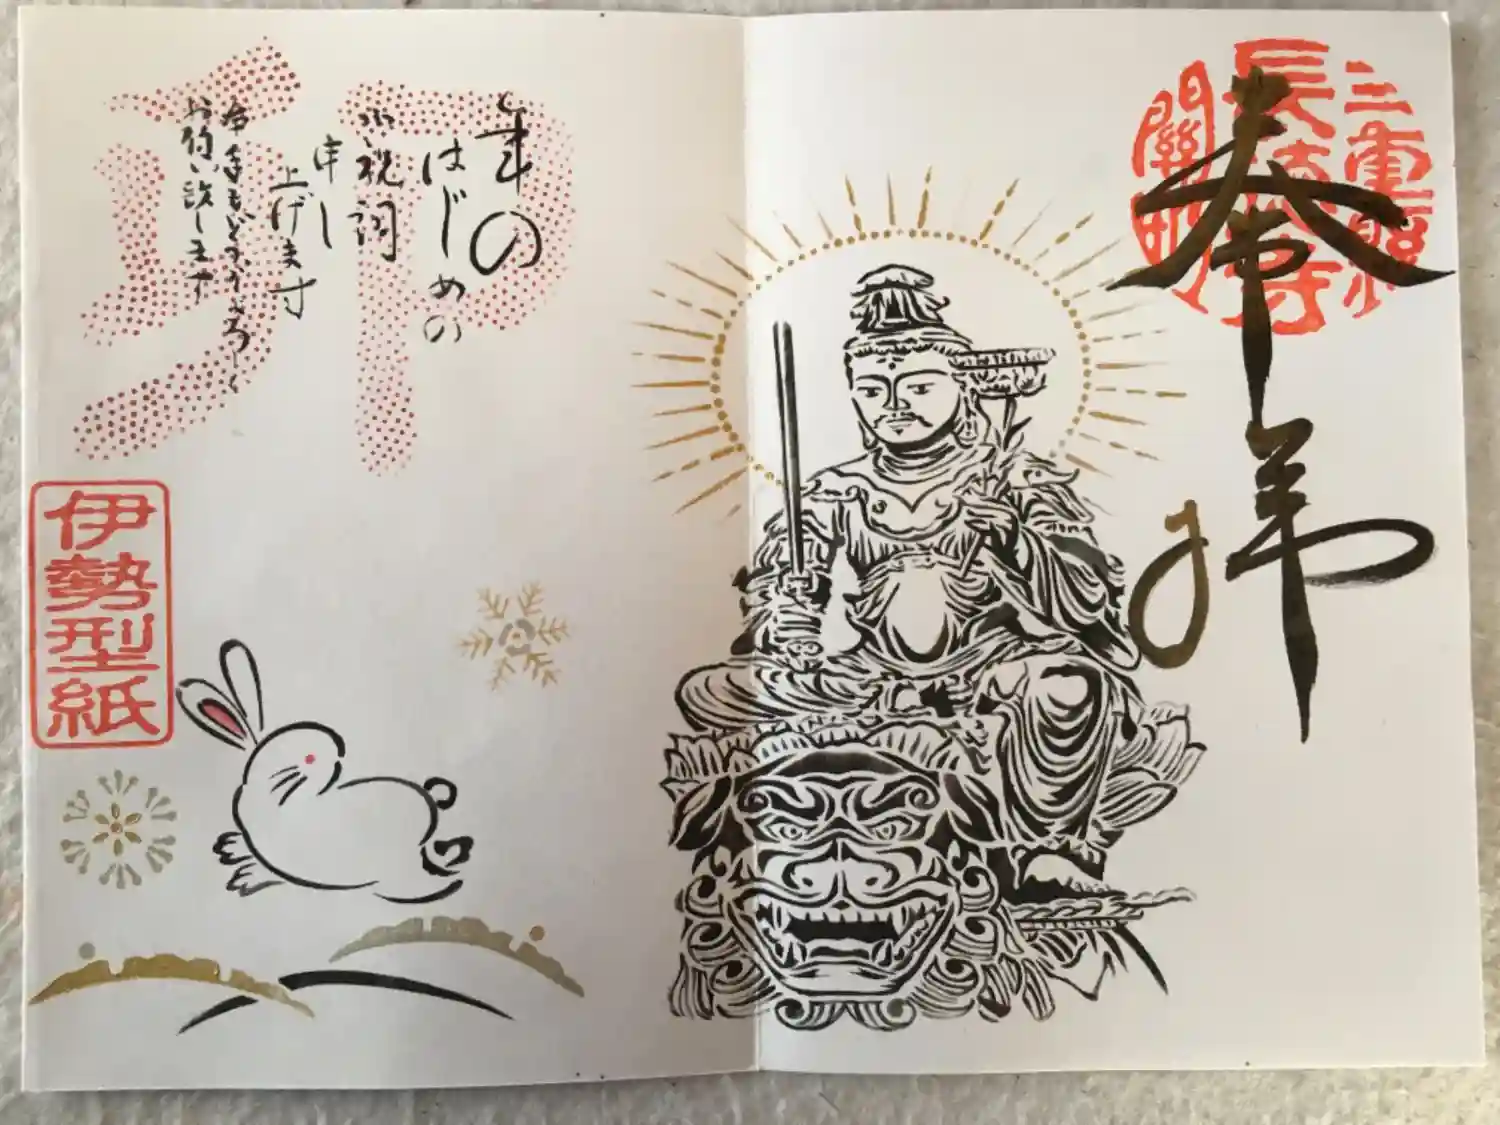 三重縣
長徳寺
奉拝
年の
はじめの
御祝詞
申し
上げます
今年もどうぞよろしく
お願い致します
卯
伊勢型紙